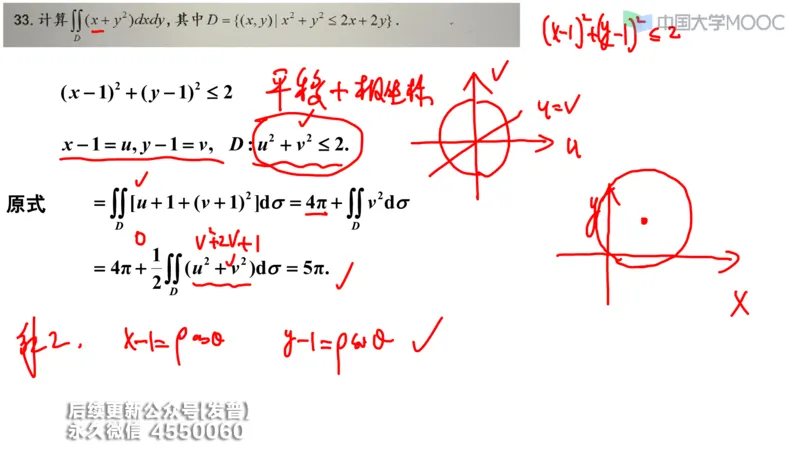 33. 计算∬_D (x + y²)dxdy, 其中 D = {(x, y) | x² + y² ≤ 2x + 2y}.
中国大学MOOC
(x-1)²+(y-1)² ≤ 2
(x − 1)² + (y − 1)² ≤ 2
平移+极坐标
x − 1 = u, y − 1 = v, D : u² + v² ≤ 2.
v
u=v
u
原式 = ∬_D [u + 1 + (v + 1)²]dσ = 4π + ∬_D v²dσ
0 v²+2v+1
= 4π + 1/2 ∬_D (u² + v²)dσ = 5π.
y
x
解2. x-1=ρcosθ y-1=ρsinθ
后续更新公众号[发普]
永久微信 4550060